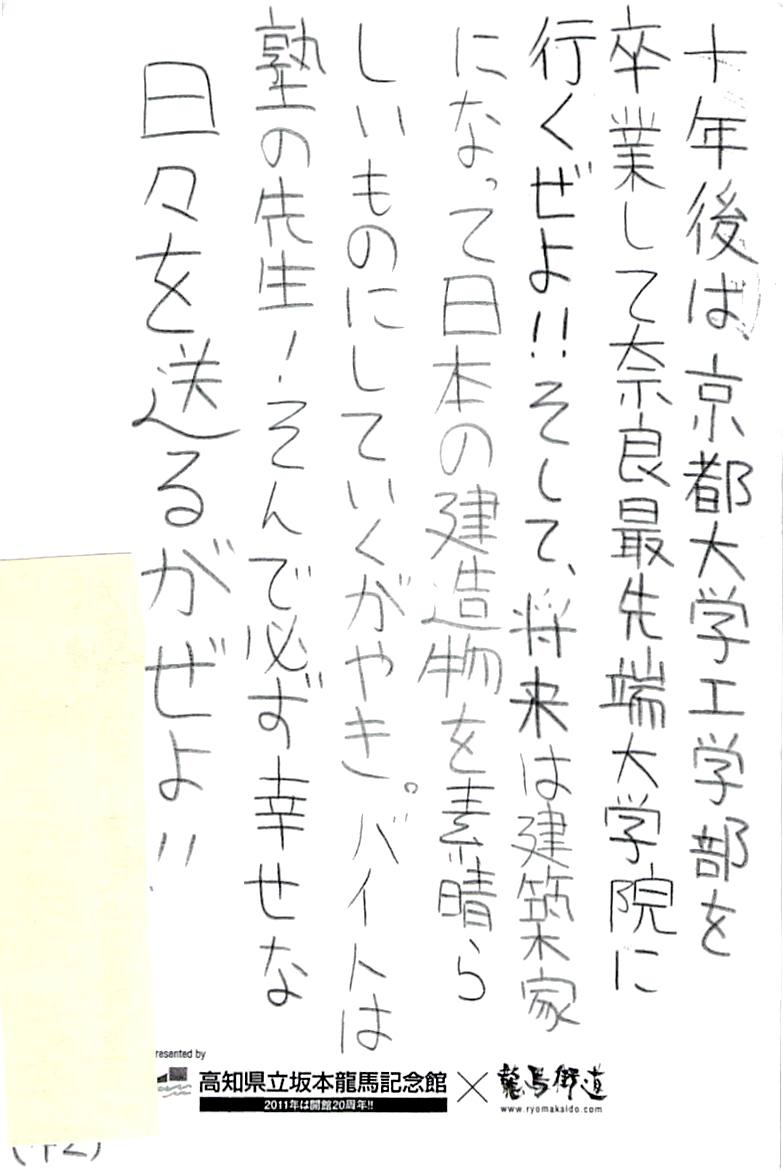 十年後は、京都大学工学部を
卒業して奈良最先端大学院に
行くぜよ!!そして、将来は建築家
になって日本の建造物を素晴ら
しいものにしていくがやき。バイトは
塾の先生!そんで必ず幸せな
日々を送るがぜよ!!
resented by
高知県立坂本龍馬記念館 × 龍馬街道
2011年は開館20周年!!
www.ryomakaido.com